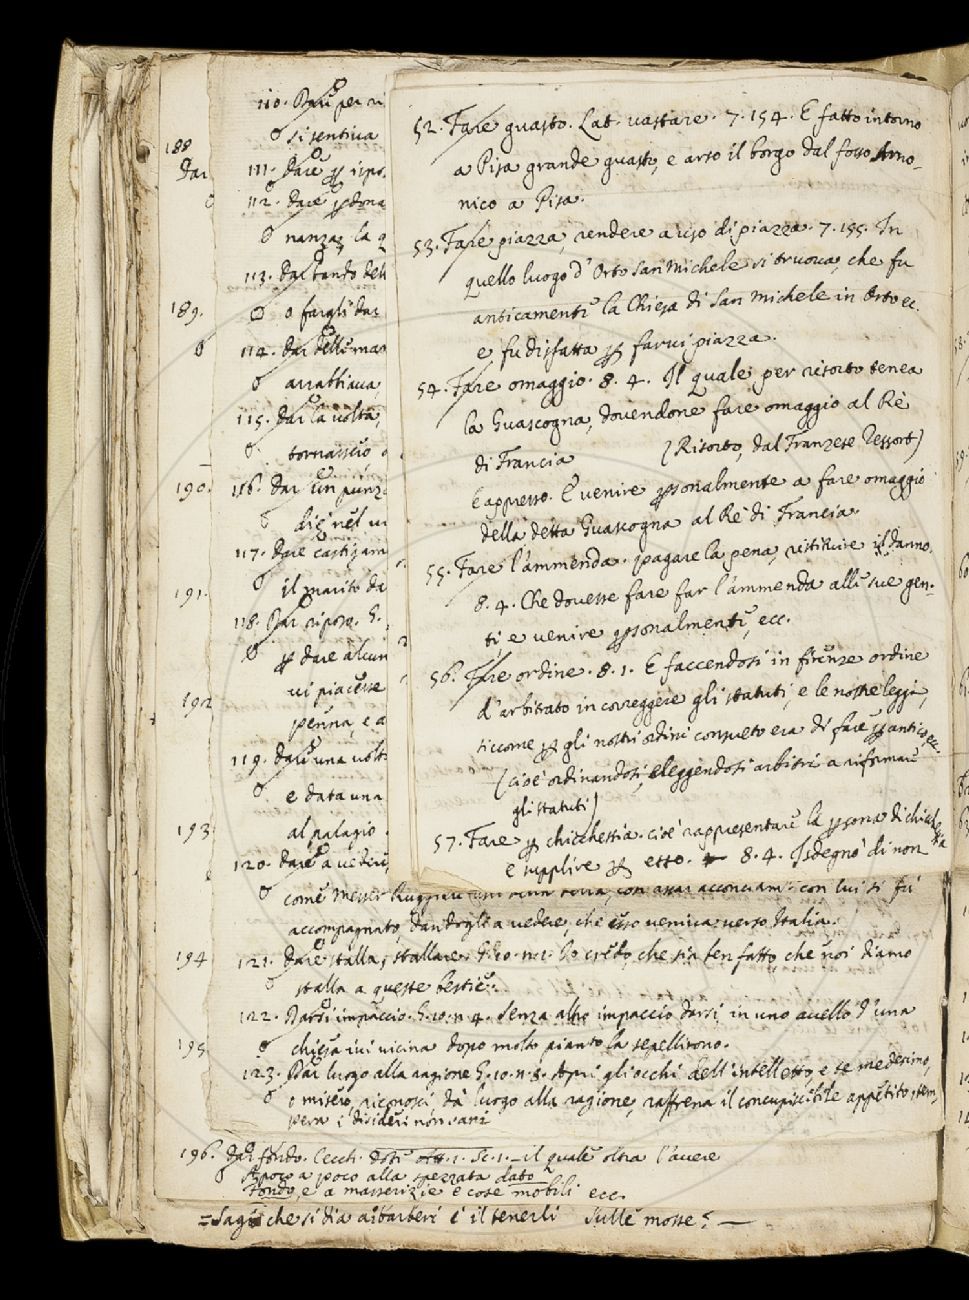 188
Dar
189.
190.
191.
192
193
194
195
110. Dare per ri
si sentiva
111. Dare per ispo.
112. dare perdona
nanza, la q
113. dar bando dell
o fargli dar
114. dar delle man
arrabbiava
115. dar la volta,
tornasse, o
116. dar un punz
diè nel vi
117. Dare castigam
il marito da
118. Dar riposo. G.
per dare alcun
vi piacesse
penna, e a
119. dare una volt
e data una
al palagio
120. dare a vedere,
52. Fare guasto. Lat. vastare. 7. 154. E fatto intorno
a Pisa grande guasto, e arso il borgo dal fosso Arno-
nico a Pisa.
53. Fare piazza, rendere a uso di piazza. 7. 155. In
quello luogo d'Orto San Michele si truova, che fu
anticamente la Chiesa di San Michele in Orto ec.
e fu disfatta per farvi piazza.
54. Fare omaggio. 8. 4. Il quale per risorto tenea
la Guascogna, dovendone fare omaggio al Rè
di Francia (Risorto, dal Franzese Ressort)
E appresso. E venire personalmente a fare omaggio
della detta Guascogna al Re di Francia.
55. Fare l'ammenda. pagare la pena, restituire il danno.
8. 4. Che dovesse fare far l'ammenda alle sue gen-
ti, e venire personalmente, ecc.
56. Fare ordine. 8. 1. E faccendosi in firenze ordine
d'arbitrato in correggere gli statuti, e le nostre leggi,
siccome per gli nostri ordini consueto era di fare per antico ec.
(cioè ordinandosi, eleggendosi arbitri a riformare
gli statuti)
57. Fare per chicchessia. cioè rappresentare la persona di chicchessia
e supplire per esso. 8. 4. Isdegnò di non
come Messer Ruggieri con lui si fu
accompagnato, dandogli a vedere, che esso veniva verso Italia.
121. Dare stalla, stallare. G. 10. n. 1. Io credo, che sia ben fatto che noi diamo
stalla a queste bestie.
122. Darsi impaccio. G. 10. n. 4. Senza altro impaccio darsi in uno avello d'una
chiesa ivi vicina dopo molto pianto la sepellirono.
123. Dar luogo alla ragione G. 10. n. 8. Apri gli occhi dell'intelletto, e te medesimo,
o misero, riconosci, dà luogo alla ragione, raffrena il concupiscibile appetito, tem,
pera i disideri non sani
196. dar fondo. Cecch. Dote Att. 1. Sc. 1. — il quale oltra l'avere
Apoco a poco alla spezzata dato
Fondo, e a masserizie e cose mobili ecc.
= Sagg. che si dia a' barberi è il tenerli sulle mosse? —